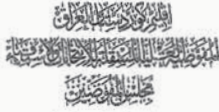 إقليم كوردستان العراق
المفوضية العليا المستقلة للانتخابات والاستفتاء
مجلس المفوضين